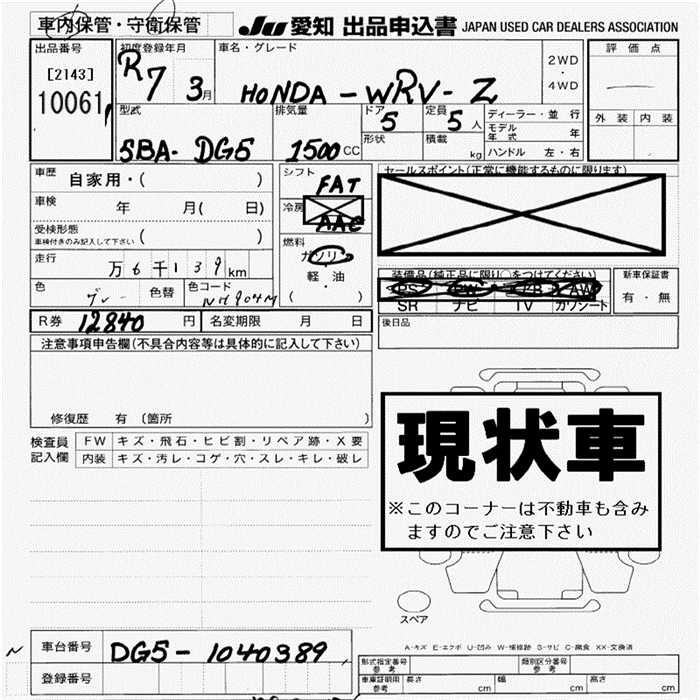 車内保管・守衛保管
JU 愛知 出品申込書 JAPAN USED CAR DEALERS ASSOCIATION
出品番号
[2143]
10061
初度登録年月
R7 3月
車名・グレード
HONDA - WRV - Z
2WD
・
4WD
評価点
外装 内装
型式
5BA- DG5
排気量
1500 CC
ドア
5
形状
定員
5人
積載
kg
ディーラー・並行
モデル年式 年
ハンドル 左・右
車歴
自家用・( )
車検
年 月( 日)
受検形態
車検付きのみ記入して下さい ( )
走行
万6千139km
色
グレー
色替
色コード
NH904M
シフト
FAT
冷房
AAC
燃料
ガソリン
・
軽・油
( )
セールスポイント(正常に機能するものに限ります)
装備品(純正品に限り○をつけてください)
PS PW AB AW
SR ナビ TV カワシート
新車保証書
有・無
R券 12840 円
名変期限 月 日
後日品
注意事項申告欄(不具合内容等は具体的に記入して下さい)
修復歴 有 〔箇所 〕
検査員
記入欄
FW キズ・飛石・ヒビ割・リペア跡・X要
内装 キズ・汚レ・コゲ・穴・スレ・キレ・破レ
現状車
※このコーナーは不動車も含み
ますのでご注意下さい
スペア
A-キズ E-エクボ U-凹み W-補修跡 S-サビ C-腐食 XX-交換済
車台番号 DG5-1040389
登録番号
型式指定番号
参考
類別区分番号
参考
車庫証明用
参考
長さ cm
幅 cm
高さ cm